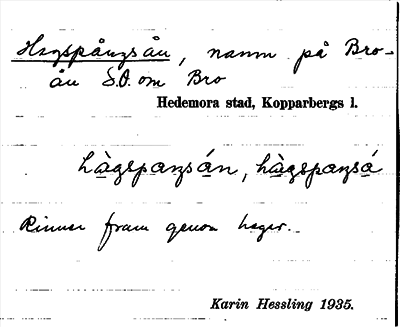 Hagspångsån, namn på Bro-
ån S.O. om Bro
Hedemora stad, Kopparbergs l.
hàgspaŋsán, hàgspaŋsá
Rinner fram genom hagar.
Karin Hessling 1935.